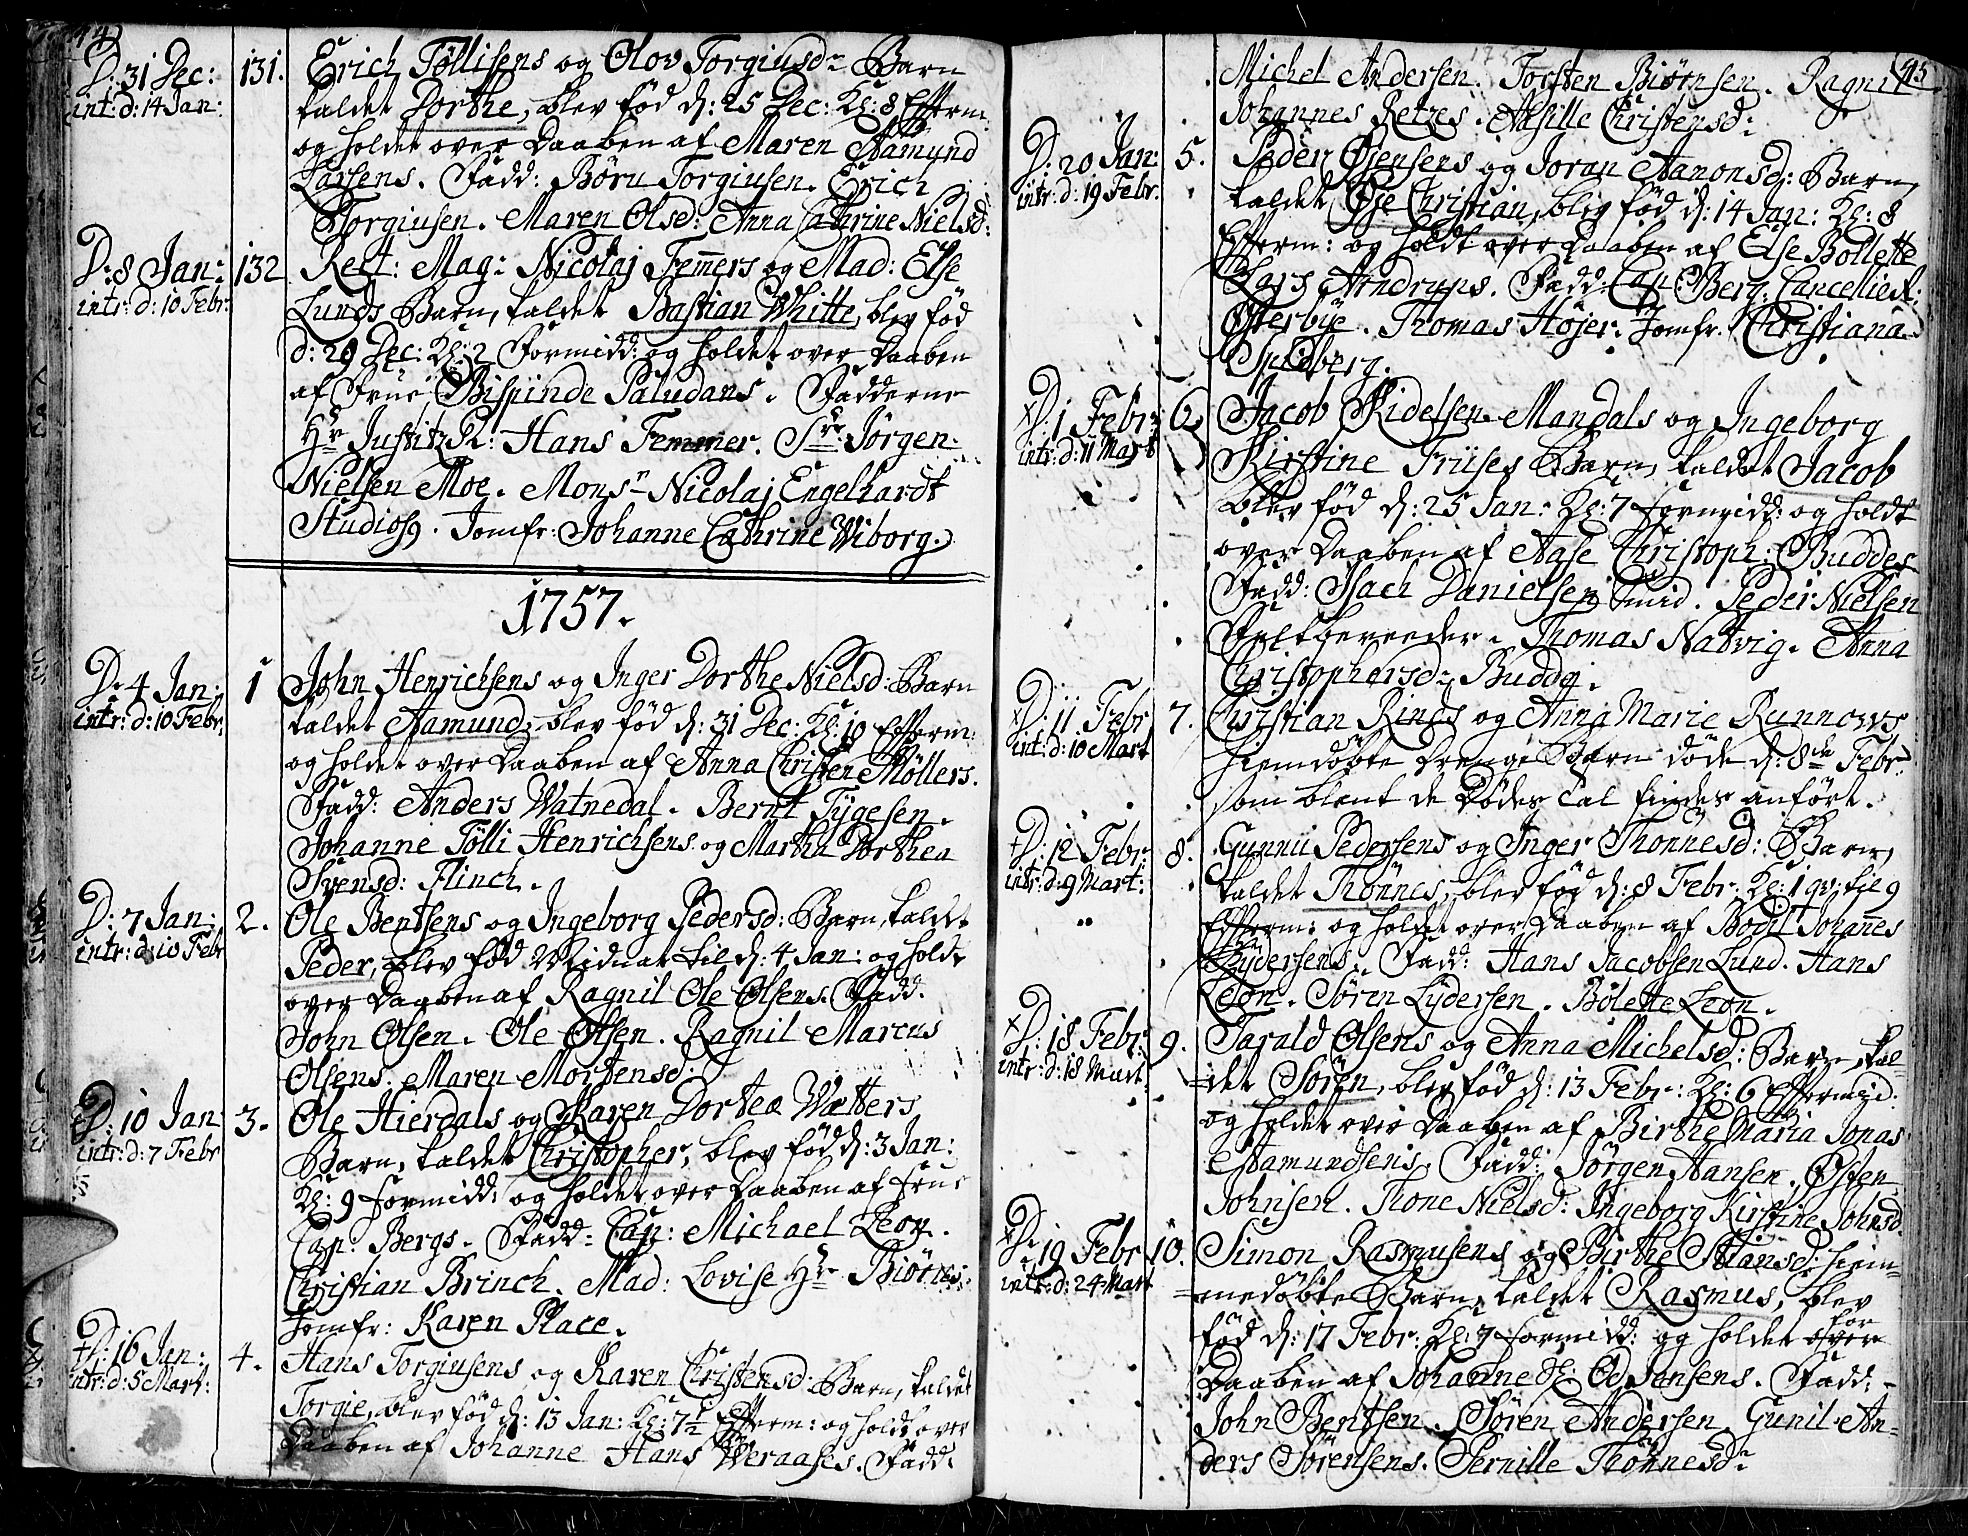 44
D: 31 Dec:
int: d: 14 Jan:
131. Erich Töllisens og Olov Torgiusdr Barn
kaldet Dorthe, blev fød d: 25 Dec: Kl: 8 Efterm:
og holdet over Daaben af Maren Aamund
Larsens. Fadd: Böru Torgiusen. Erich
Torgiusen. Maren Olsd: Anna Cathrine Nielsd:
D: 8 Jan:
intr: d: 10 Febr:
132 Rect: Mag: Nicolaj Femmers og Mad: Else
Lunds Barn, kaldet Bastian Whitte, blev fød
d: 29 Dec: Kl: 2 Formidd: og holdet over Daaben
af Frue Bispinde Paludans. Fadderne
Hr Justitz R: Hans Femmer. Sr Jørgen
Nielsen Moe. Monsr Nicolaj Engelhardt
Studios9. Jomfr: Johanne Cathrine Wiborg.
1757.
D: 4 Jan:
intr: d: 10 Febr:
1 John Henrichsens og Inger Dorthe Nielsd: Barn
kaldet Aamund, blev fød d: 31 Dec: Kl: 10 Efterm:
og holdet over Daaben af Anna Christen Møllers.
Fadd: Anders Watnedal. Bernt Tygesen.
Johanne Tölli Henrichsens og Martha Dorthea
Svensd: Flinch.
D: 7 Jan:
intr: d: 10 Febr
2. Ole Bentsens og Ingeborg Pedersd: Barn, kaldet
Peder, blev fød Midnat til d: 4 Jan: og holdt
over Daaben af Ragnil Ole Olsens. Fadd:
John Olsen. Ole Olsen. Ragnil Marcus
Olsens. Maren Mortensd:
D: 10 Jan
intr: d: 7 Febr
3. Ole Hierdals og Karen Dortea Wetters
Barn, kaldet Christopher, blev fød d: 3 Jan:
Kl: 9 Formidd: og holdet over Daaben af Frue
Cap: Bergs. Fadd: Cap: Michael Leon.
Christian Brinch. Mad: Lovise Hr Biørns.
Jomfr: Karen Place.
D: 16 Jan:
intr: d: 5 Mart:
4. Hans Torgiusens og Karen Christensd: Barn, kaldet
Torgie, blev fød d: 13 Jan: Kl: 7½ Efterm: og holdt over
Daaben af Johanne Hans Weraases. Fadd:
45
Michel Andersen. Torsten Biørnsen. Ragnil
Johannes Retzes. Aasille Christensd:
D: 20 Jan:
intr: d: 19 Febr.
5. Peder Øjensens og Joran Aanonsd: Barn,
kaldet Øje Christian, blev fød d: 14 Jan: Kl: 8
Efterm: og holdt over Daaben af Else Bollette
Lars Arndrups. Fadd: Cap: Berg. Cancellied:
Østerbye. Thomas Höjer. Jomfr. Christiana
Spidberg.
D: 1 Febr:
intr: d: 11 Mart
6. Jacob Kidelsen Mandals og Ingeborg
Kirstine Friises Barn, kaldet Jacob
blev fød d: 25 Jan: Kl: 7 Formidd: og holdt
over Daaben af Aase Christoph: Buddes
Fadd: Isach Danielsen Smid. Peder Nielsen
Feltbereeder. Thomas Natvig. Anna
Christophersd: Budde.
D: 11 Febr
int: d: 10 Mart
7. Christian Rings og Anna Marie Runnows
hiemdöbte Drenge Barn döde d: 8de Febr:
som blant de Dödes Tal findes anfört.
D: 12 Febr:
intr: d: 9 Mart:
8. Gunnii Pedersens og Inger Thonnesd: Barn,
kaldet Thönnes, blev fød d: 8 Febr. Kl: 1 qv: til 9
Efterm: og holdet over Daaben af Bodil Johannes
Lydersens. Fadd: Hans Jacobsen Lund. Hans
Leon. Sören Lydersen. Bolette Leon.
D: 18 Febr:
intr: d: 18 Mart
9. Tarald Olsens og Anna Michelsd: Barn, kal
-det Sören, blev fød d: 13 Febr: Kl: 6 Eftermid:
og holdet over Daaben af Birthe Maria Jonas
Aamundsens, Fadd: Jörgen Hansen. Østen
Johnsen. Thone Nielsd: Ingeborg Kirstine Johnsd.
D: 19 Febr
intr: d: 24 Mart
10. Simon Rasmusens og Birthe Stiansd: hiem-
-medöbte Barn, kaldet Rasmus, blev
fød d: 17 Febr: Kl: 7 Formidd: og holdet over for
Daaben af Johanne Odd Jensens. Fadd:
John Bentsen. Sören Andersen. Gunil An-
ders Sörensens. Pernille Thonnesd: